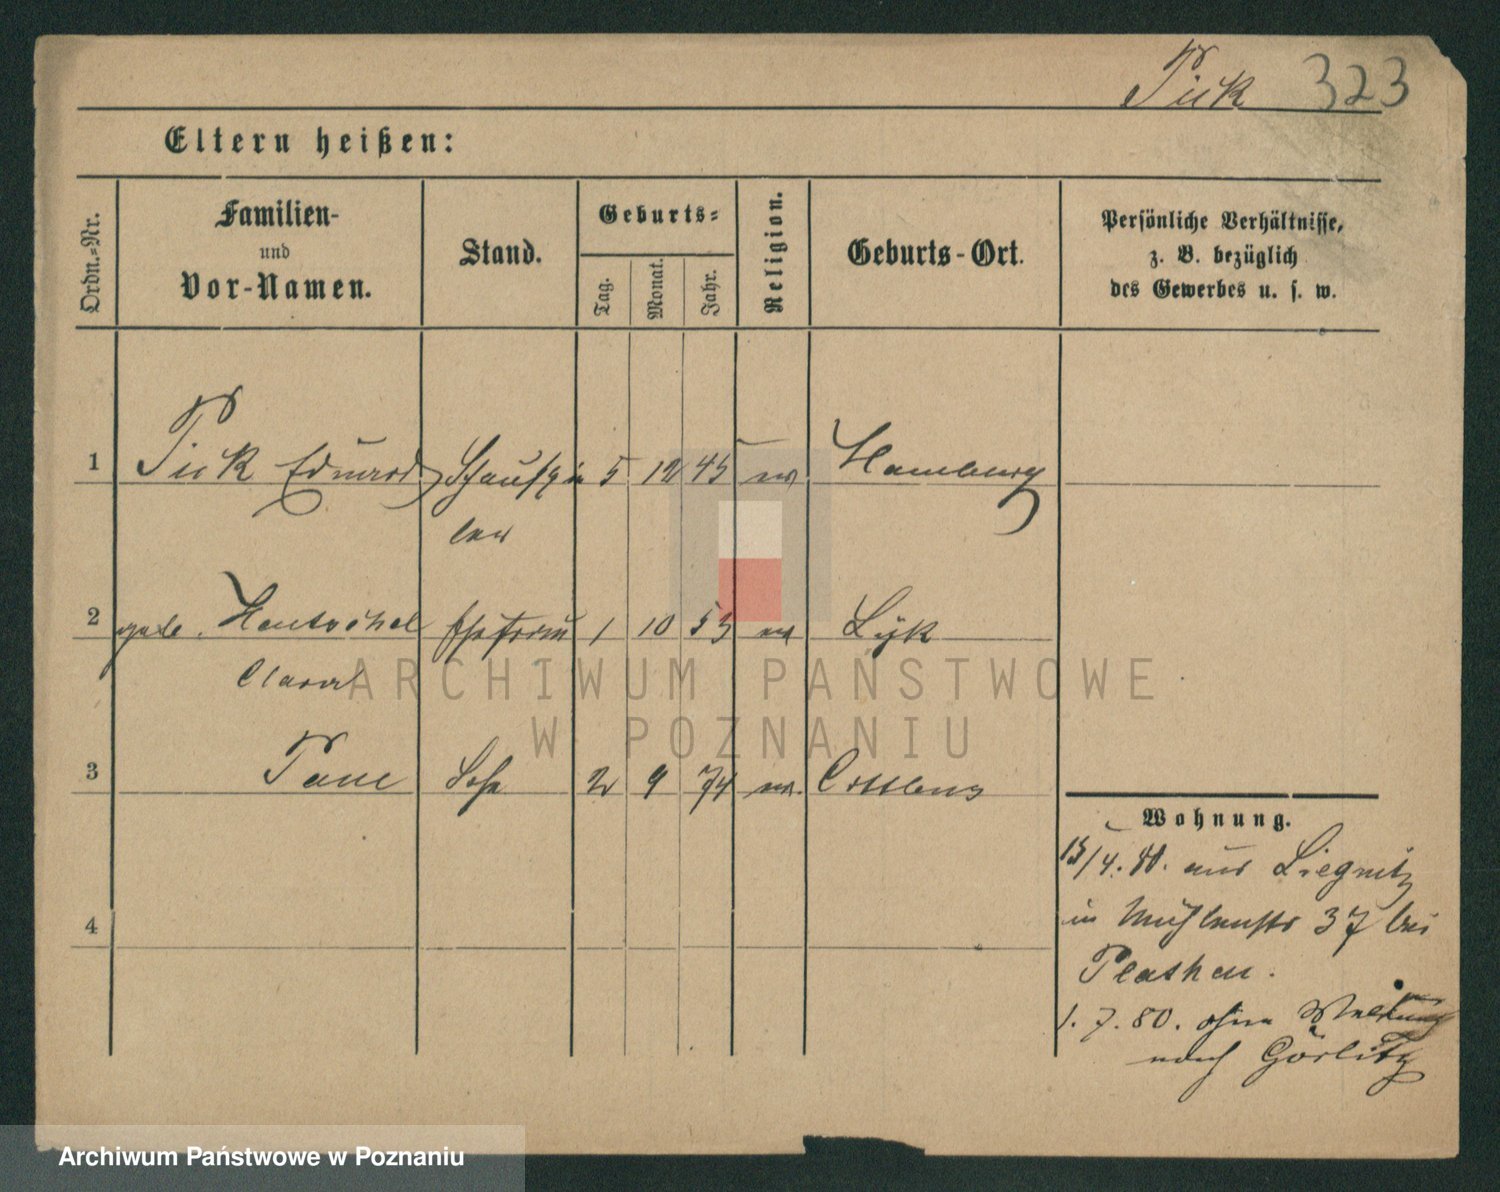 Pick 323
Eltern heißen:
Ordn.-Nr.
Familien-
und
Vor-Namen.
Stand.
Geburts-
Tag.
Monat.
Jahr.
Religion.
Geburts-Ort.
Persönliche Verhältnisse,
z. B. bezüglich
des Gewerbes u. s. w.
1 Pick Eduard Schauspie 5 12 45 ev Hamburg
ler
2 geb. Hentschel Ehefrau 1 10 53 ev Lyk
Clara
3 Paul Sohn 2 9 74 ev. Coblenz
4
Wohnung.
13/4. 80. aus Liegnitz
in Mühlenstr 37 bei
1. 7. 80. ohne Meldung
nach Görlitz
ARCHIWUM PAŃSTWOWE
W POZNANIU
Archiwum Państwowe w Poznaniu